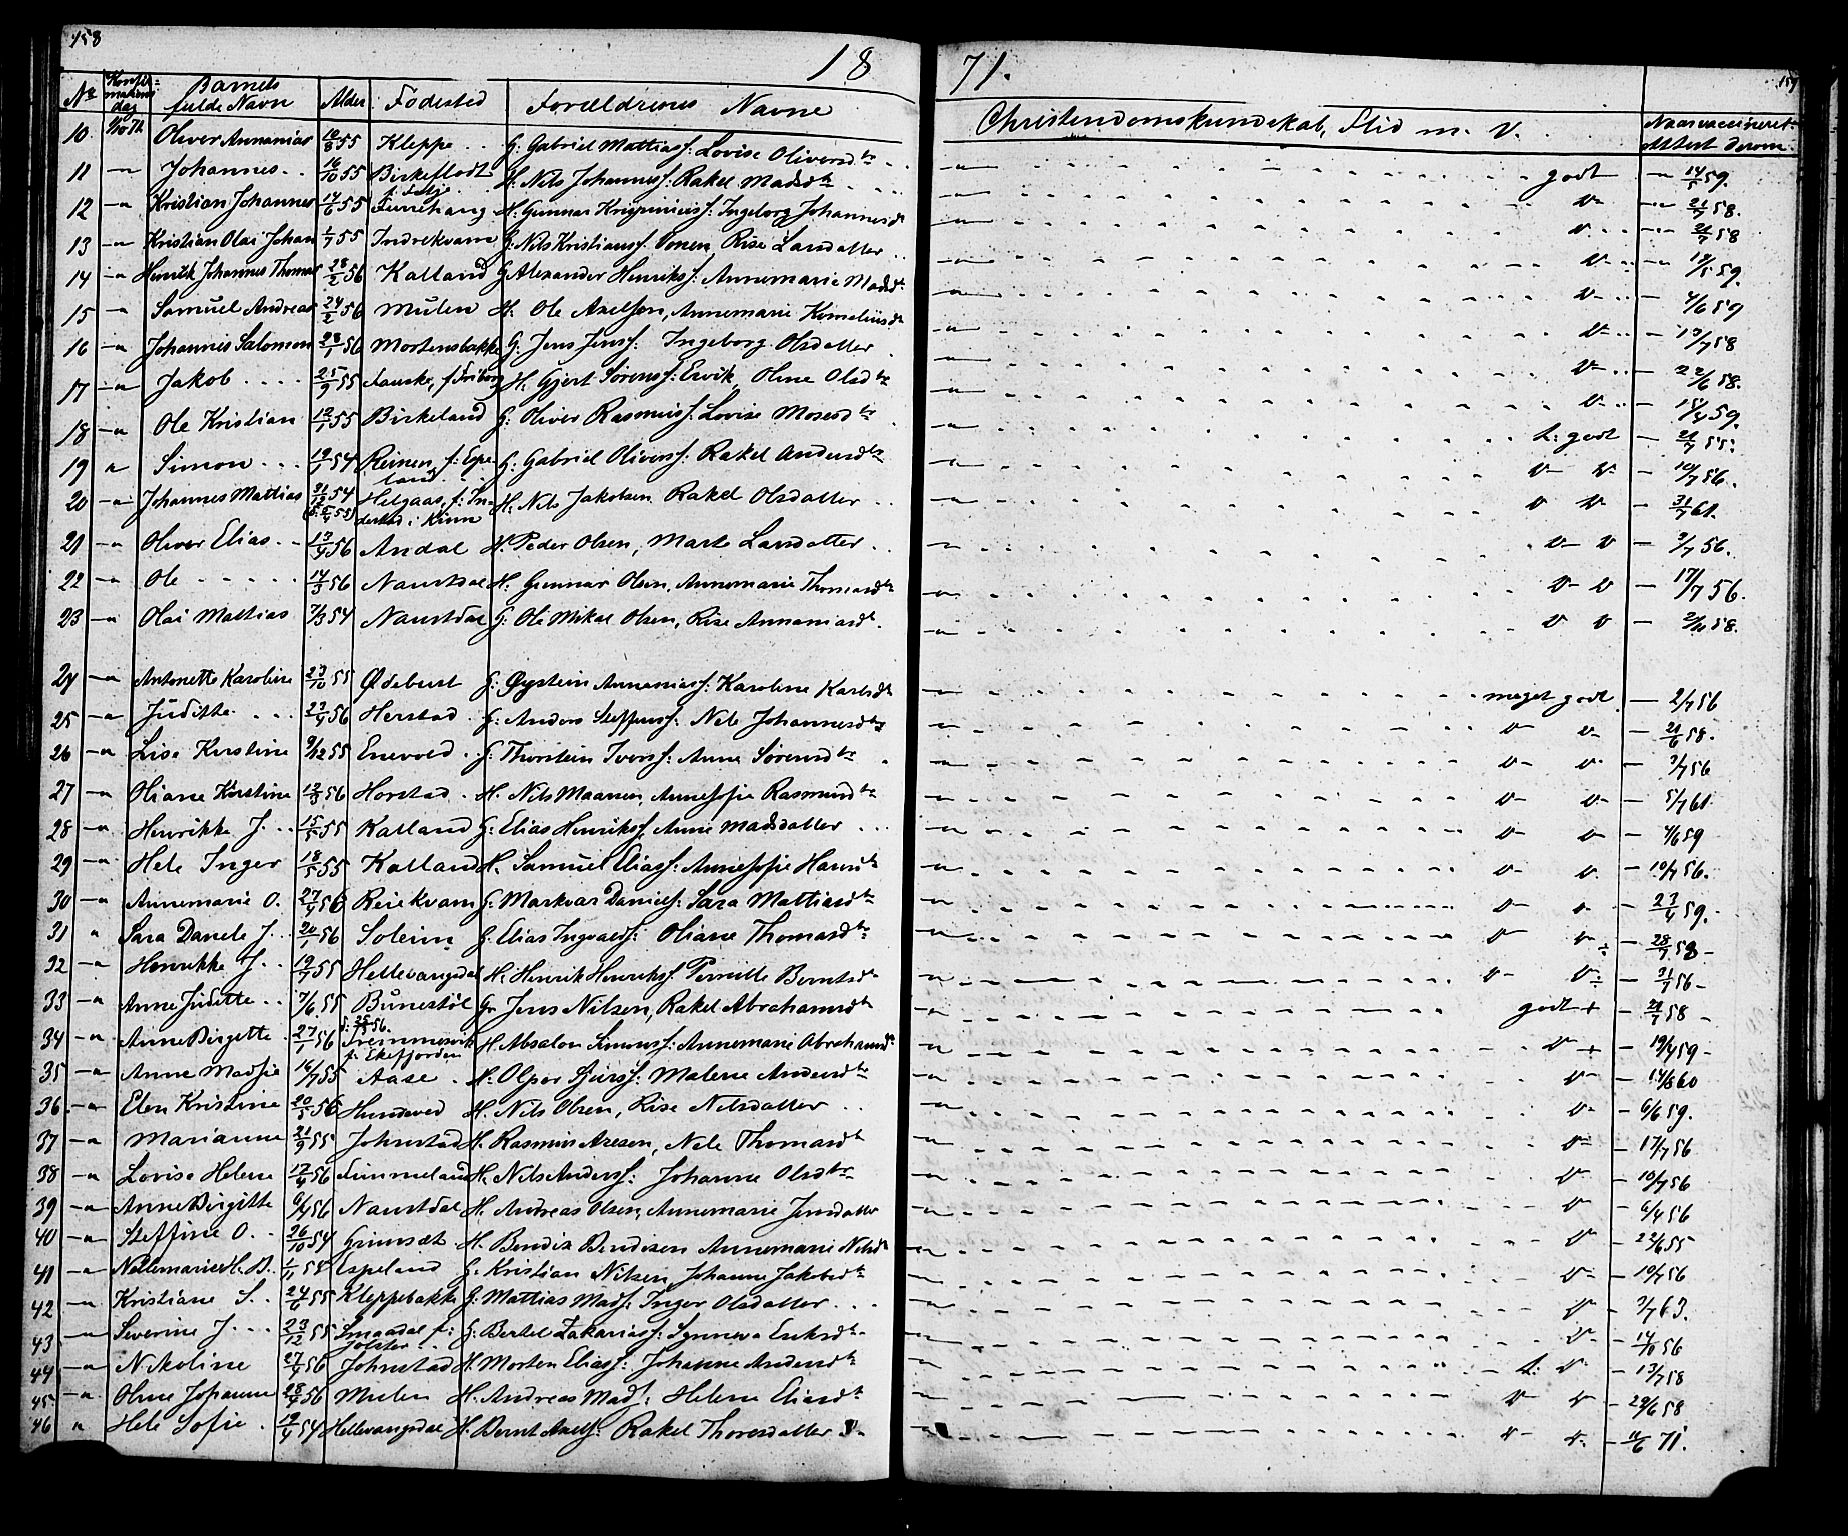 158
18
71.
159
No Konfirmations dag Barnets fulde Navn Alder Fødested Forældrenes Navne Christendomskundskab, Flid m. V. Naar vaccineret attest derom
10. Oliver Annanias 55 Kleppe G. Gabriel Mattiass: Lovise Oliversdtr godt 14/5 59.
11 Johannes 16/10 55 Birkeflodt H. Nils Johanness: Rakel Madsdtr v- 21/7 58.
12 Kristian Johannes 17/6 55 H. Gunnar Ingeborg Johannesdtr v 21/7 58
13 Kristian Olai Johan 1/7 55 Indrekvam G. Nils Kristians: Rise Larsdatter v-
14 Henrik Johannes Thomas 28/2 56 Kalland G. Alexander Henriks: Annemarie Madsdtr v- 4/6 59
15 Samuel Andreas 24/2 56 Mulen H. Ole Axelsen, Annemarie Korneliusdtr v- 13/7 58
16 Johannes Salomon 28/1 56 Mortensbakke G. Jens Jenss: Ingeborg Olsdatter v- 22/6 58.
17 Jakob 25/9 55 H. Gjert Sørens: Ervik, Oline Olsdtr v- 59.
18 Ole Kristian 55 Birkeland G. Oliver Rasmuss: Lovise Mosesdtr t: godt 21/7 55.
19 Simon 54 Reinen, f: Espeland G: Gabriel Olivers: Rakel Andersdtr v v 10/7 56.
20 Johannes Mattias 31/12 54 Helgaas, f: Inderstad i Kinn H. Nils Jakobsen Rakel Olsdatter v v 31/7 61.
21 Oliver Elias 56 Andal H. Peder Olsen, Marte Larsdatter v v 3/7 56.
22 Ole 14/3 56 Naustdal H. Gunnar Olsen, Annemarie Thomasdtr v v 17/7 56.
23 Olai Mattias 7/3 54 Naustdal G. Ole Mikal Olsen, Rise Annaniasdtr. v v 58.
24 Antonette Karoline 23/10 55 Ødebust G. Øystein Annaniass: Karoline Karlsdtr meget godt 2/7 56
25 Juditte 56 Herstad G. Anders Steffens: Nele Johannesdtr v v 21/6 58.
26 Lise Kirstine 9/12 55 Enevold G. Thorstein Ivers: Anne Sørensdtr v v 3/7 56
27 Oliane Kirstine 12/3 56 Horstad H. Nils Maanen, Annesofie Rasmusdtr v- v- 5/7 61.
28 Henrikke J. 15/5 55 Kalland G. Elias Henriks: Anne Madsdatter v v 59
29 Hele Inger 18/5 55 Kalland H. Samuel Eliass: Annesofie Hansdtr v v 10/7 56.
30 Annemarie O. 27/4 56 Reiekvam G. Markvar Daniels: Sara Mattiasdtr v v 23/4 59.
31 Sara Danele J. 20/1 56 Soleim G. Elias Ingvalds: Oliane Thomasdtr v v 28/7 58
32 Henrikke J. 19/7 55 Hellevangsdal H. Henrik Henriks: Pernille Berntsdtr v v 31/7 56
33 Anne Juditte 7/6 55 Bunestøl G. Jens Nilsen, Rakel Abrahamsdtr godt + 21/7 58
34 Anne Birgitte 27/1 56 f: Ekefjorden H. Absalon Simons: Annemarie Abrahamsdtr v + 19/4 59
35 Anne Madsie 16/7 55 Aase H. Olper Sjurs: Malene Andersdtr v 14/8 60
36 Elen Kristine 20/5 56 Hundsved H. Nils Olsen, Rise Nilsdatter v 6/6 59.
37 Marianne 21/9 55 Johnstad H. Rasmus Aresen, Nele Thomasdtr v 17/7 56
38 Lovise Helene 17/4 56 Fimmeland H. Nils Anders: Johanne Olsdtr v 10/7 56
39 Anne Birgitte 6/4 56 Naustdal H. Andreas Olsen, Annemarie Jensdatter v 6/4 56
40 Steffine O. 26/10 54 Grimsæt H. Bendix Bendixen Annemarie Nilsdtr v 22/6 55
41 Nellemarie H. B. 1/11 55 Espeland G. Kristian Nilsen, Johanne Jakobsdtr v 10/7 56
42 Kristiane S. 24/6 55 Kleppebakke G. Mattias Mads: Inger Olsdatter v 3/7 63.
43 Severine J. 23/12 55 Smaadal f: Jølster G. Bertel Zakariass: Synneva Eriksdtr v 56
44 Nikoline 27/4 56 Johnstad H. Morten Eliass: Johanne Andersdtr t: v 13/7 58
45 Oline Johanne 28/4 56 Mulen H. Andreas Mads: Helene Eliasdtr v v 29/6 58
46 Hele Sofie 19/4 54 Hellevangsdal H. Bernt Axels: Rakel Thoresdatter v v 11/6 71.